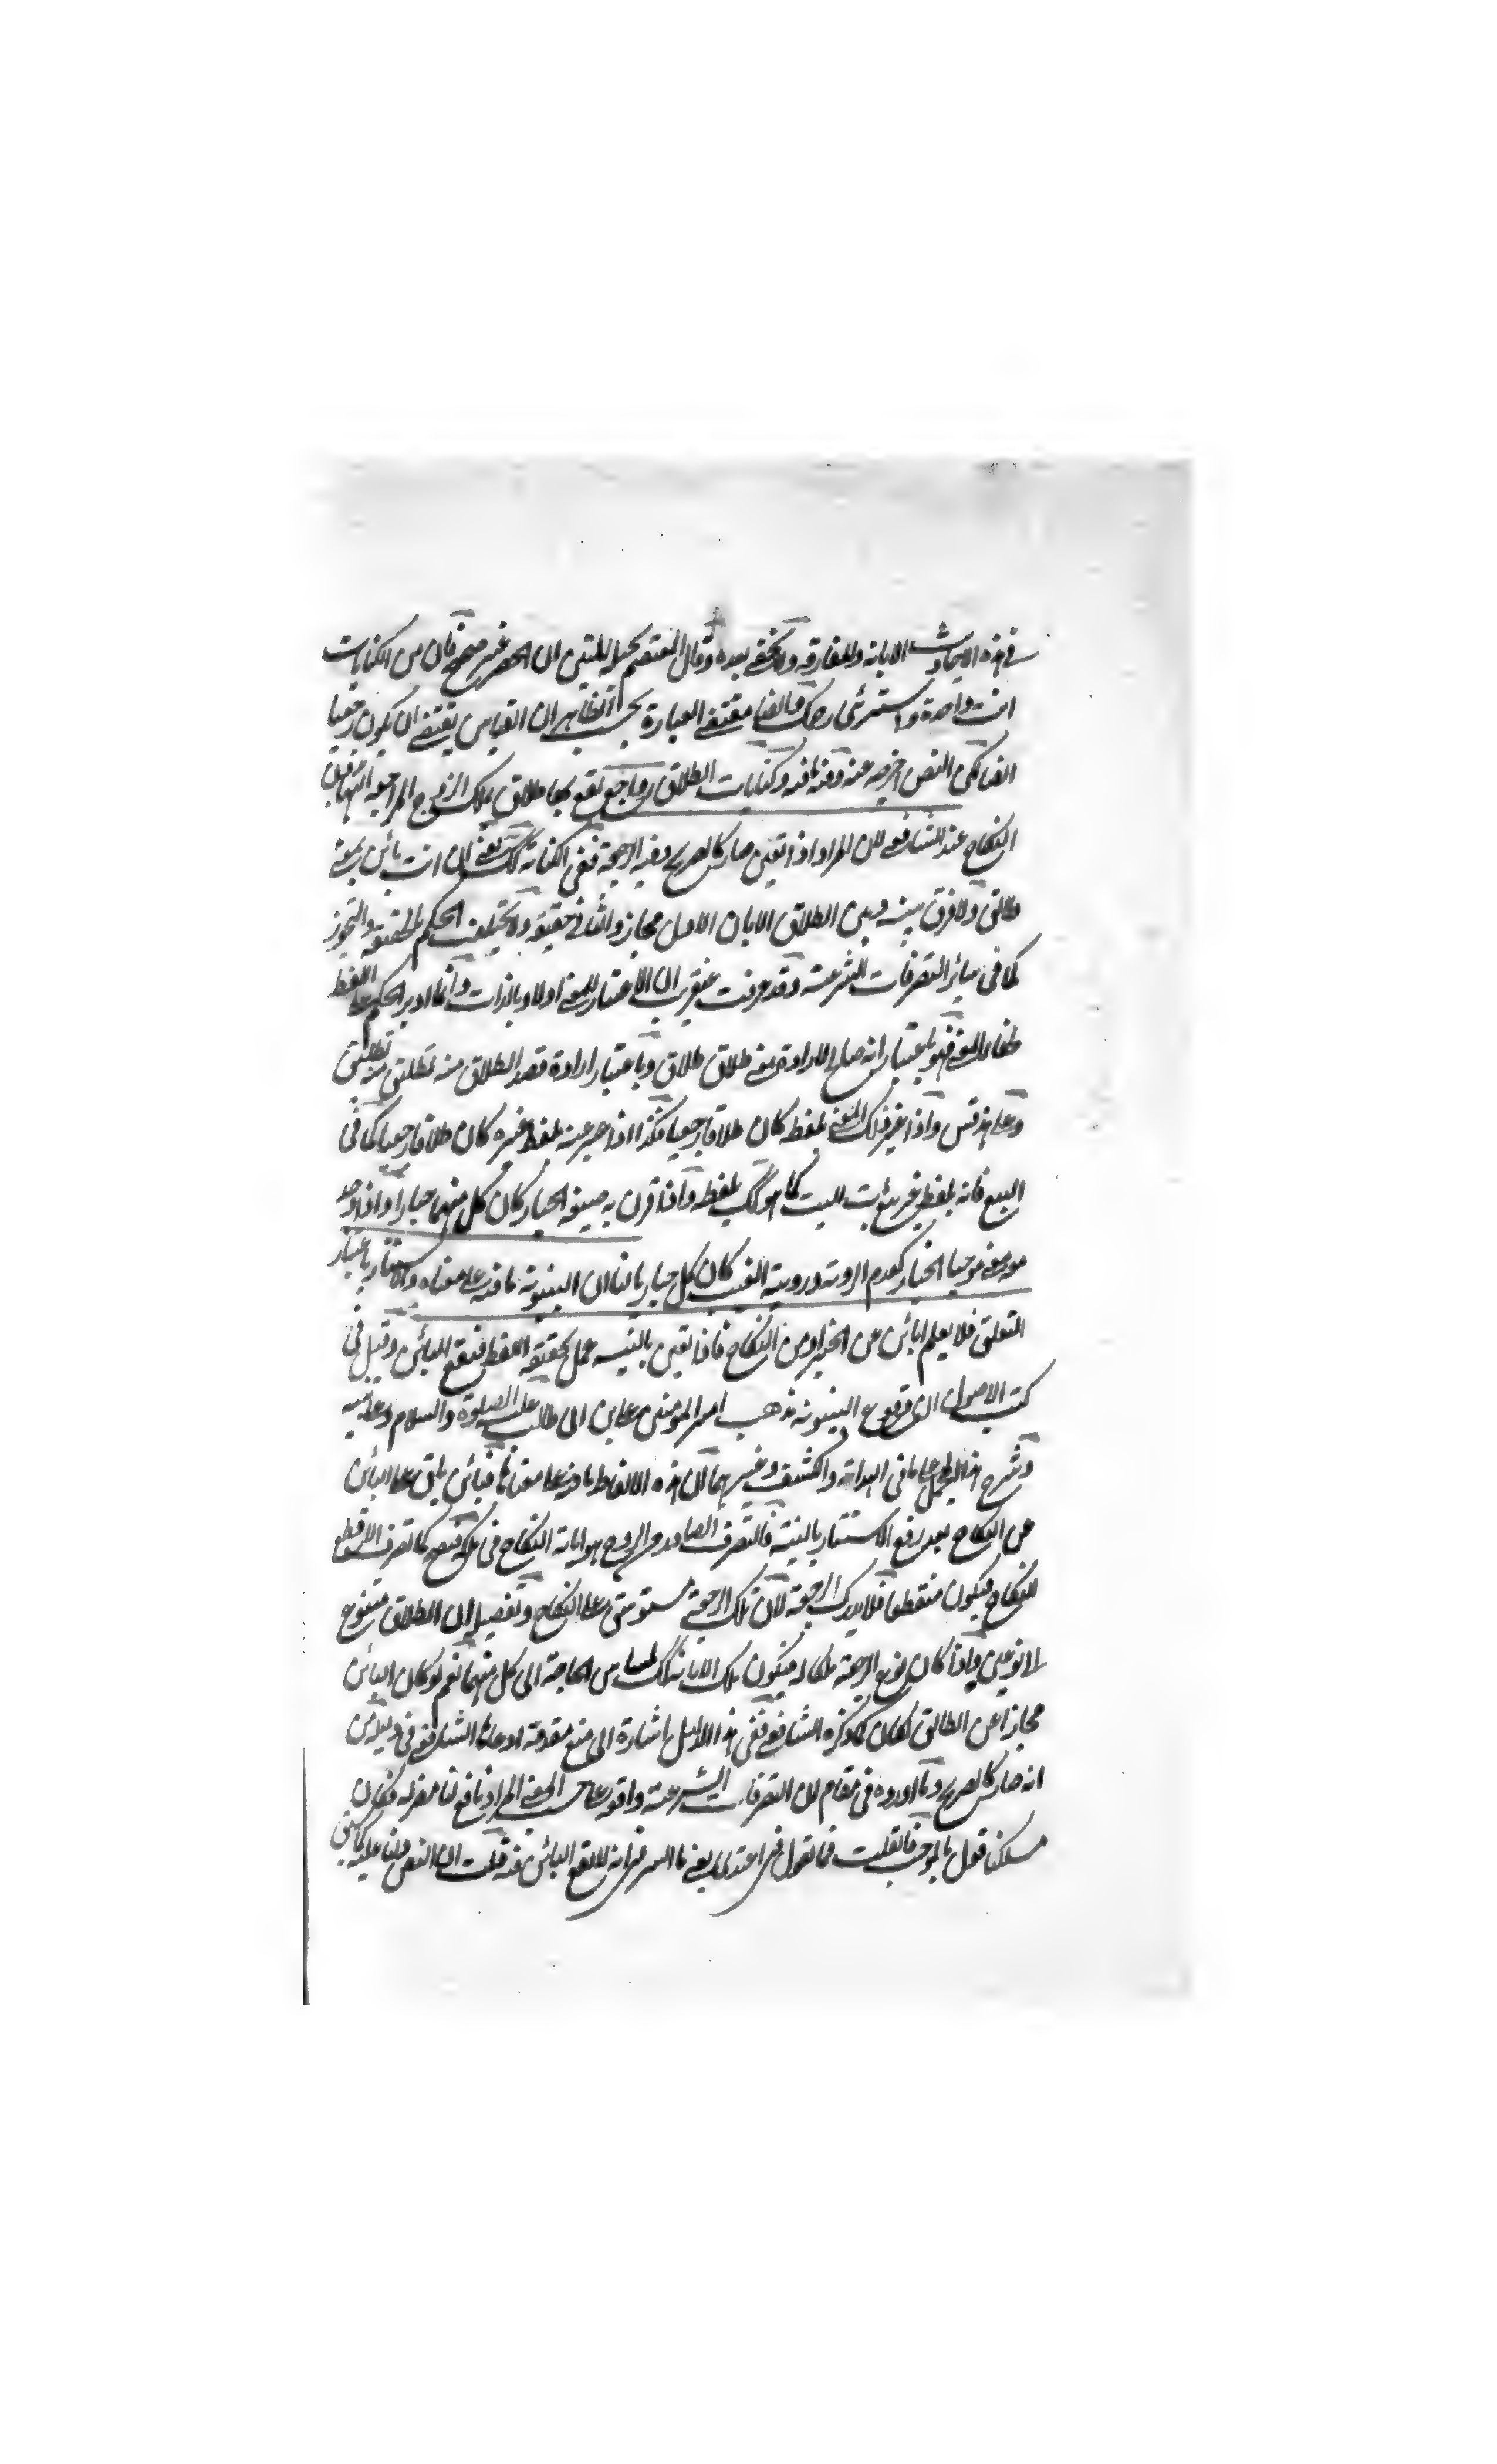 في هذه الايحاوث الابانه والمفارقه ولا يخفى بعده وقال المعتصم بحبل الله المتين ان الحصر غير صحيح فان من الكنايات
انت واحدة واستبرئي رحمك فالضا مقتضى العبارة بحسب الظاهر ان القياس يقتضى ان يكون رجعيا
الضا لكن النص اخرجه عنه وفيه ما فيه وكنايات الطلاق رواجع يقع بها طلاق يملك الزوج المراجعة
النكاح عند الشافعي لان المراد اذا تعين صار كالصريح وفيه الرجعة ففي الكناية كك يعني ان انت بائن بمعنى
طالق ولا فرق بينه وبين الطلاق الا بان الاول مجاز والثاني حقيقة ولا يختلف الحكم بالحقيقة والتجوز
كما في سائر التصرفات الشرعية وقد عرفت عنقريب ان الاعتبار للمعنى اولا وبالذات وانما ادير الحكم على اللفظ
فهو باعتبار انه صالح لارادة معنى طلاق طلاق وباعتبار ارادة قصد الطلاق منه تطليق
وعلى هذا قس واذا غير ذلك المعنى بلفظ كان طلاقا رجعيا فكذا اذا عبر عنه بلفظ غيره كان طلاقا رجعيا كما في
البيع فانه بلفظ غير بيع بات البيت كما هو كك بلفظه واذا قرن به صيغة الخيار كان كل منهما خيارا واذا وجد
موجبا الخيار كعدم الروية وروية العيب كان كل خيار بالنا ان البينونة ما فيه على معناه والاستتار باعتبار
التعلق فلا يعلم ابائن عن الخير او من النكاح فاذا تعين بالنيه عمل بحقيقة اللفظ فيقع البائن وقيل في
كتب الاصول ان وقوع البينونة مذهب امير المؤمنين علي بن ابي طالب عليه الصلوة والسلام وعلى نبيه
وشرح هذا المجمل على ما في الهداية والكشف وغيرهما ان هذه الالفاظ باقية على معناها فبائن باق على البائن
عن النكاح بعد رفع الاستتار بالنية فالتصرف الصادر من الزوج هو ابانة النكاح في ملكه فيصح كما تصرف القاطع
للنكاح فيكون منقطعا فلا يدرك الرجعة لان تلك الرجعة مستوسق على النكاح وتفصيله ان الطلاق متنوع
الى نوعين واذا كان نوع الرجعة ملكا له فيكون ملك الابانة كك لمساس الحاجة الى كل منهما نعم لو كان البائن
مجازا عن الطالق لكان كما ذكره الشافعي ففي هذا الدليل اشارة الى منع مقدمة ادعاها الشافعي في دليله من
انه صار كالصريح وما اورده في مقام ان التصرفات الشرعية واقعة على حسب المعنى المراد نافع لنا مضر له فكان
مسلكنا قول بالموجب فان قلت فما تقول في اعتدي يعني ما السر في انه لا يقع البائن فيه قلت ان النص